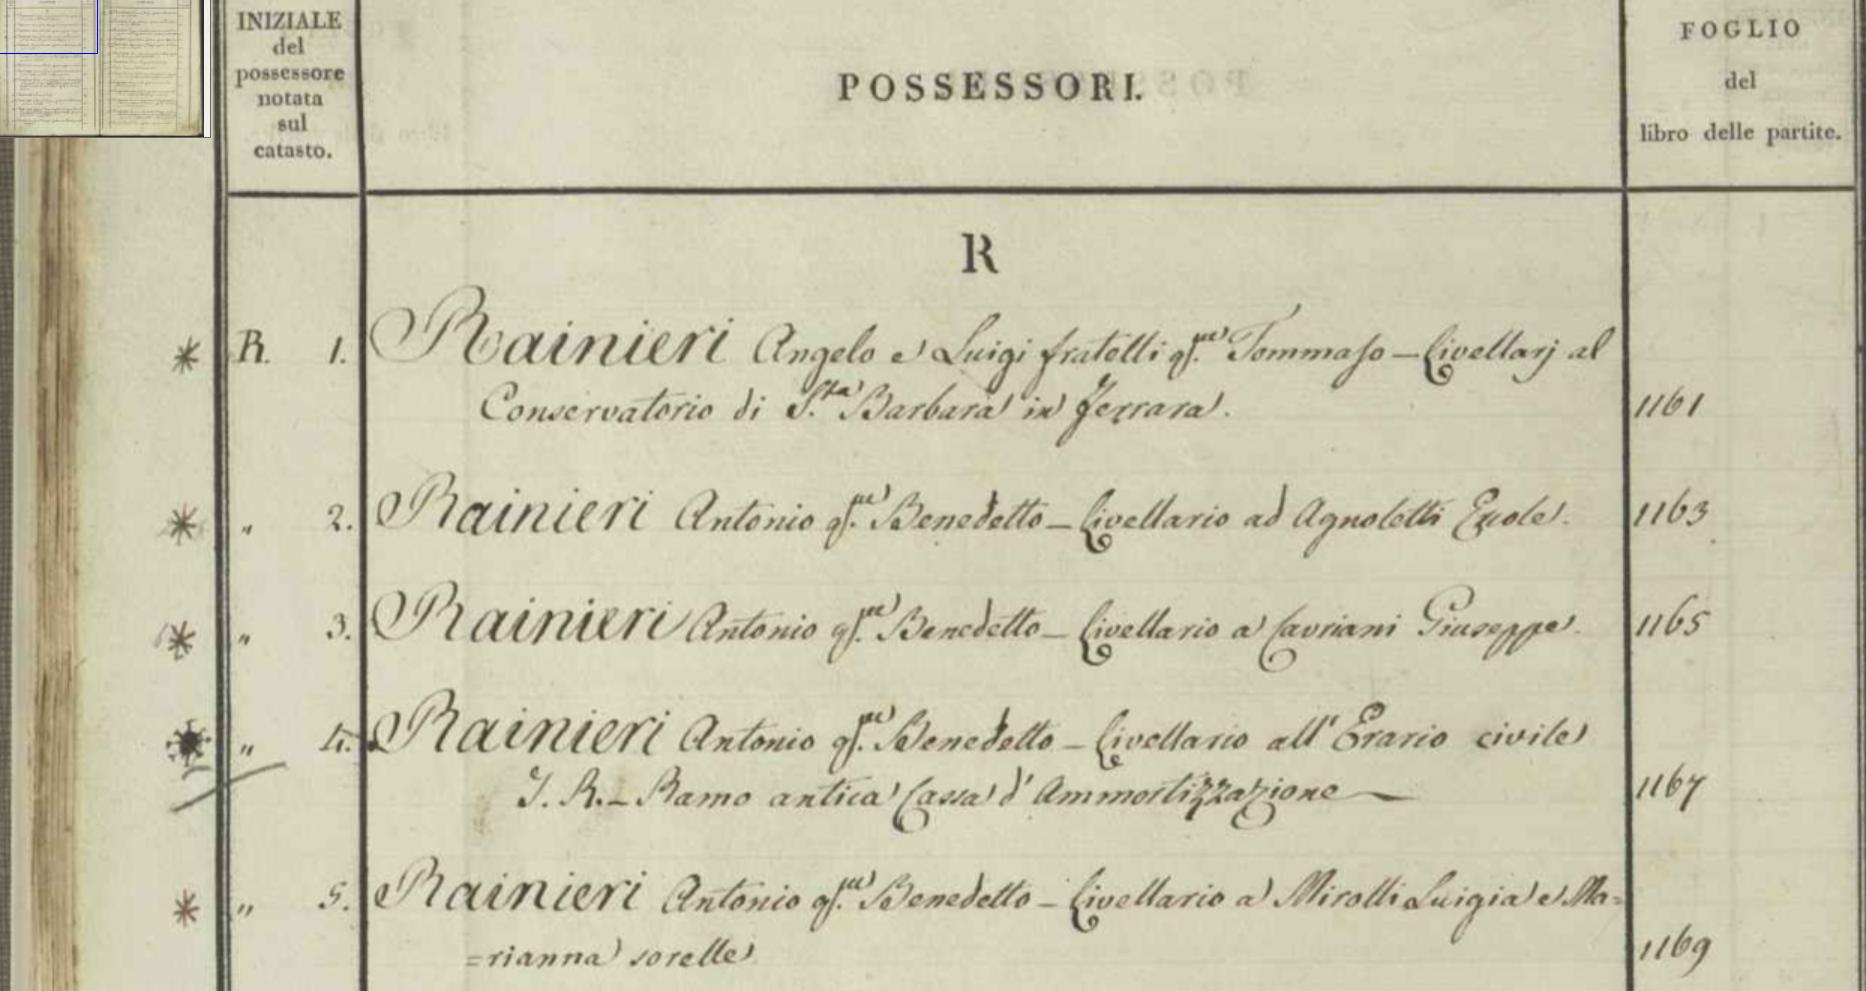 INIZIALE
del
possessore
notata
sul
catasto.
POSSESSORI.
FOGLIO
del
libro delle partite.
R
R. 1. Rainieri Angelo e Luigi fratelli qm. Tommaso — Livellarj al
Conservatorio di S.ta Barbara in Ferrara. 1161
" 2. Rainieri Antonio qm. Benedetto — Livellario ad Agnoletti 1163
" 3. Rainieri Antonio qm. Benedetto — Livellario a Cavriani Giuseppe. 1165
" 4. Rainieri Antonio qm. Benedetto — Livellario all'Erario civile
I. R. — Ramo antica Cassa d'Ammortizzazione — 1167
" 5. Rainieri Antonio qm. Benedetto — Livellario a Mirolli Luigia e Ma=
=rianna sorelle 1169